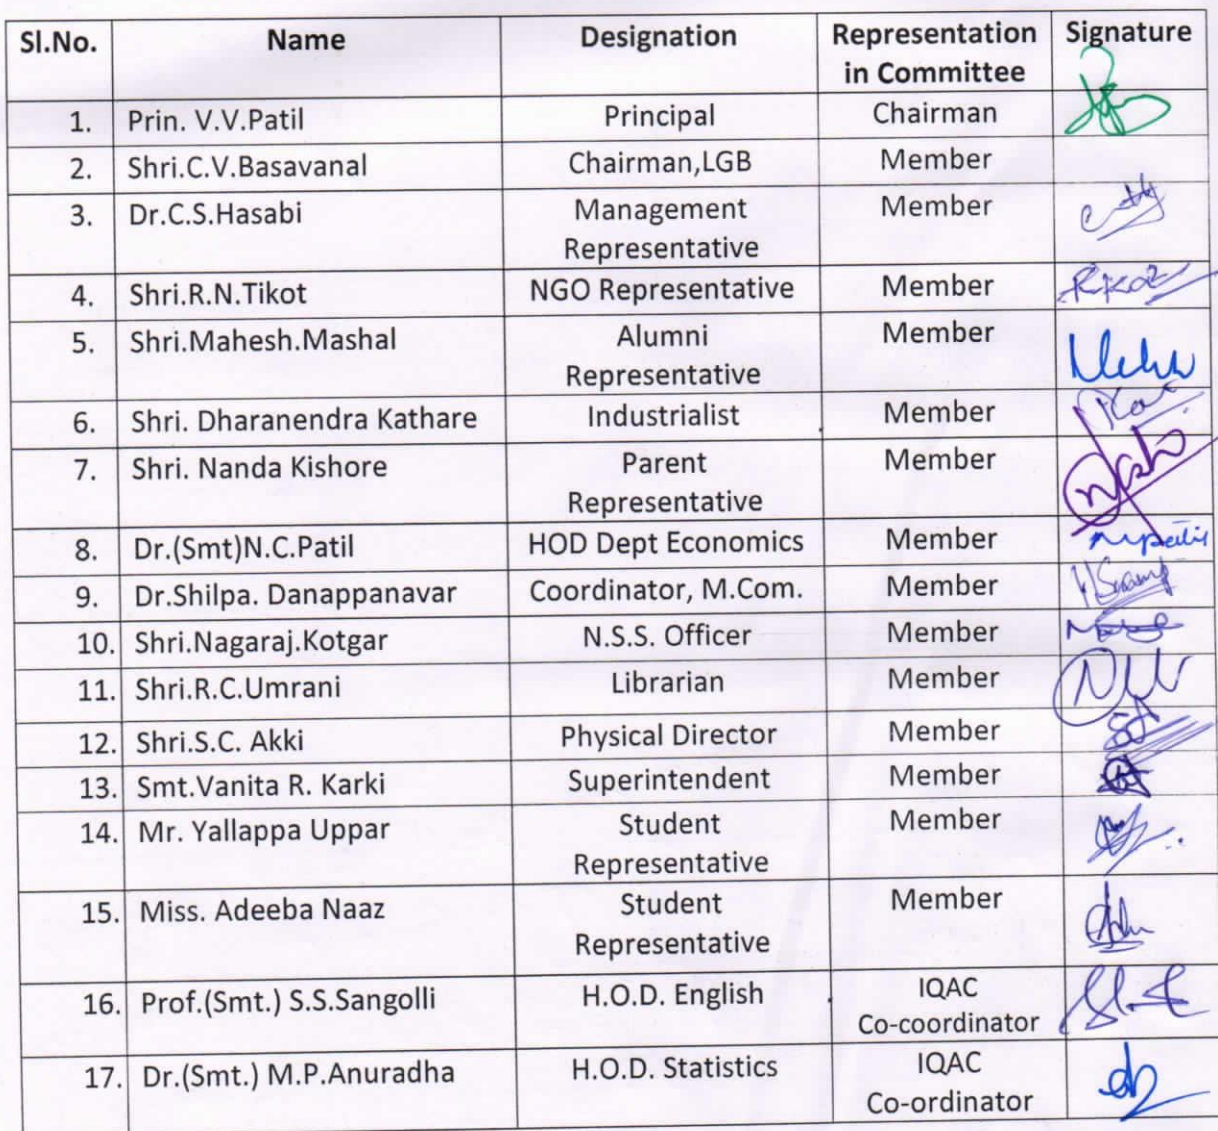 Sl.No. Name Designation Representation Signature
in Committee
1. Prin. V.V.Patil Principal Chairman
2. Shri.C.V.Basavanal Chairman,LGB Member
3. Dr.C.S.Hasabi Management Member
Representative
4. Shri.R.N.Tikot NGO Representative Member
5. Shri.Mahesh.Mashal Alumni Member
Representative
6. Shri. Dharanendra Kathare Industrialist Member
7. Shri. Nanda Kishore Parent Member
Representative
8. Dr.(Smt)N.C.Patil HOD Dept Economics Member
9. Dr.Shilpa. Danappanavar Coordinator, M.Com. Member
10. Shri.Nagaraj.Kotgar N.S.S. Officer Member
11. Shri.R.C.Umrani Librarian Member
12. Shri.S.C. Akki Physical Director Member
13. Smt.Vanita R. Karki Superintendent Member
14. Mr. Yallappa Uppar Student Member
Representative
15. Miss. Adeeba Naaz Student Member
Representative
16. Prof.(Smt.) S.S.Sangolli H.O.D. English IQAC
Co-coordinator
17. Dr.(Smt.) M.P.Anuradha H.O.D. Statistics IQAC
Co-ordinator